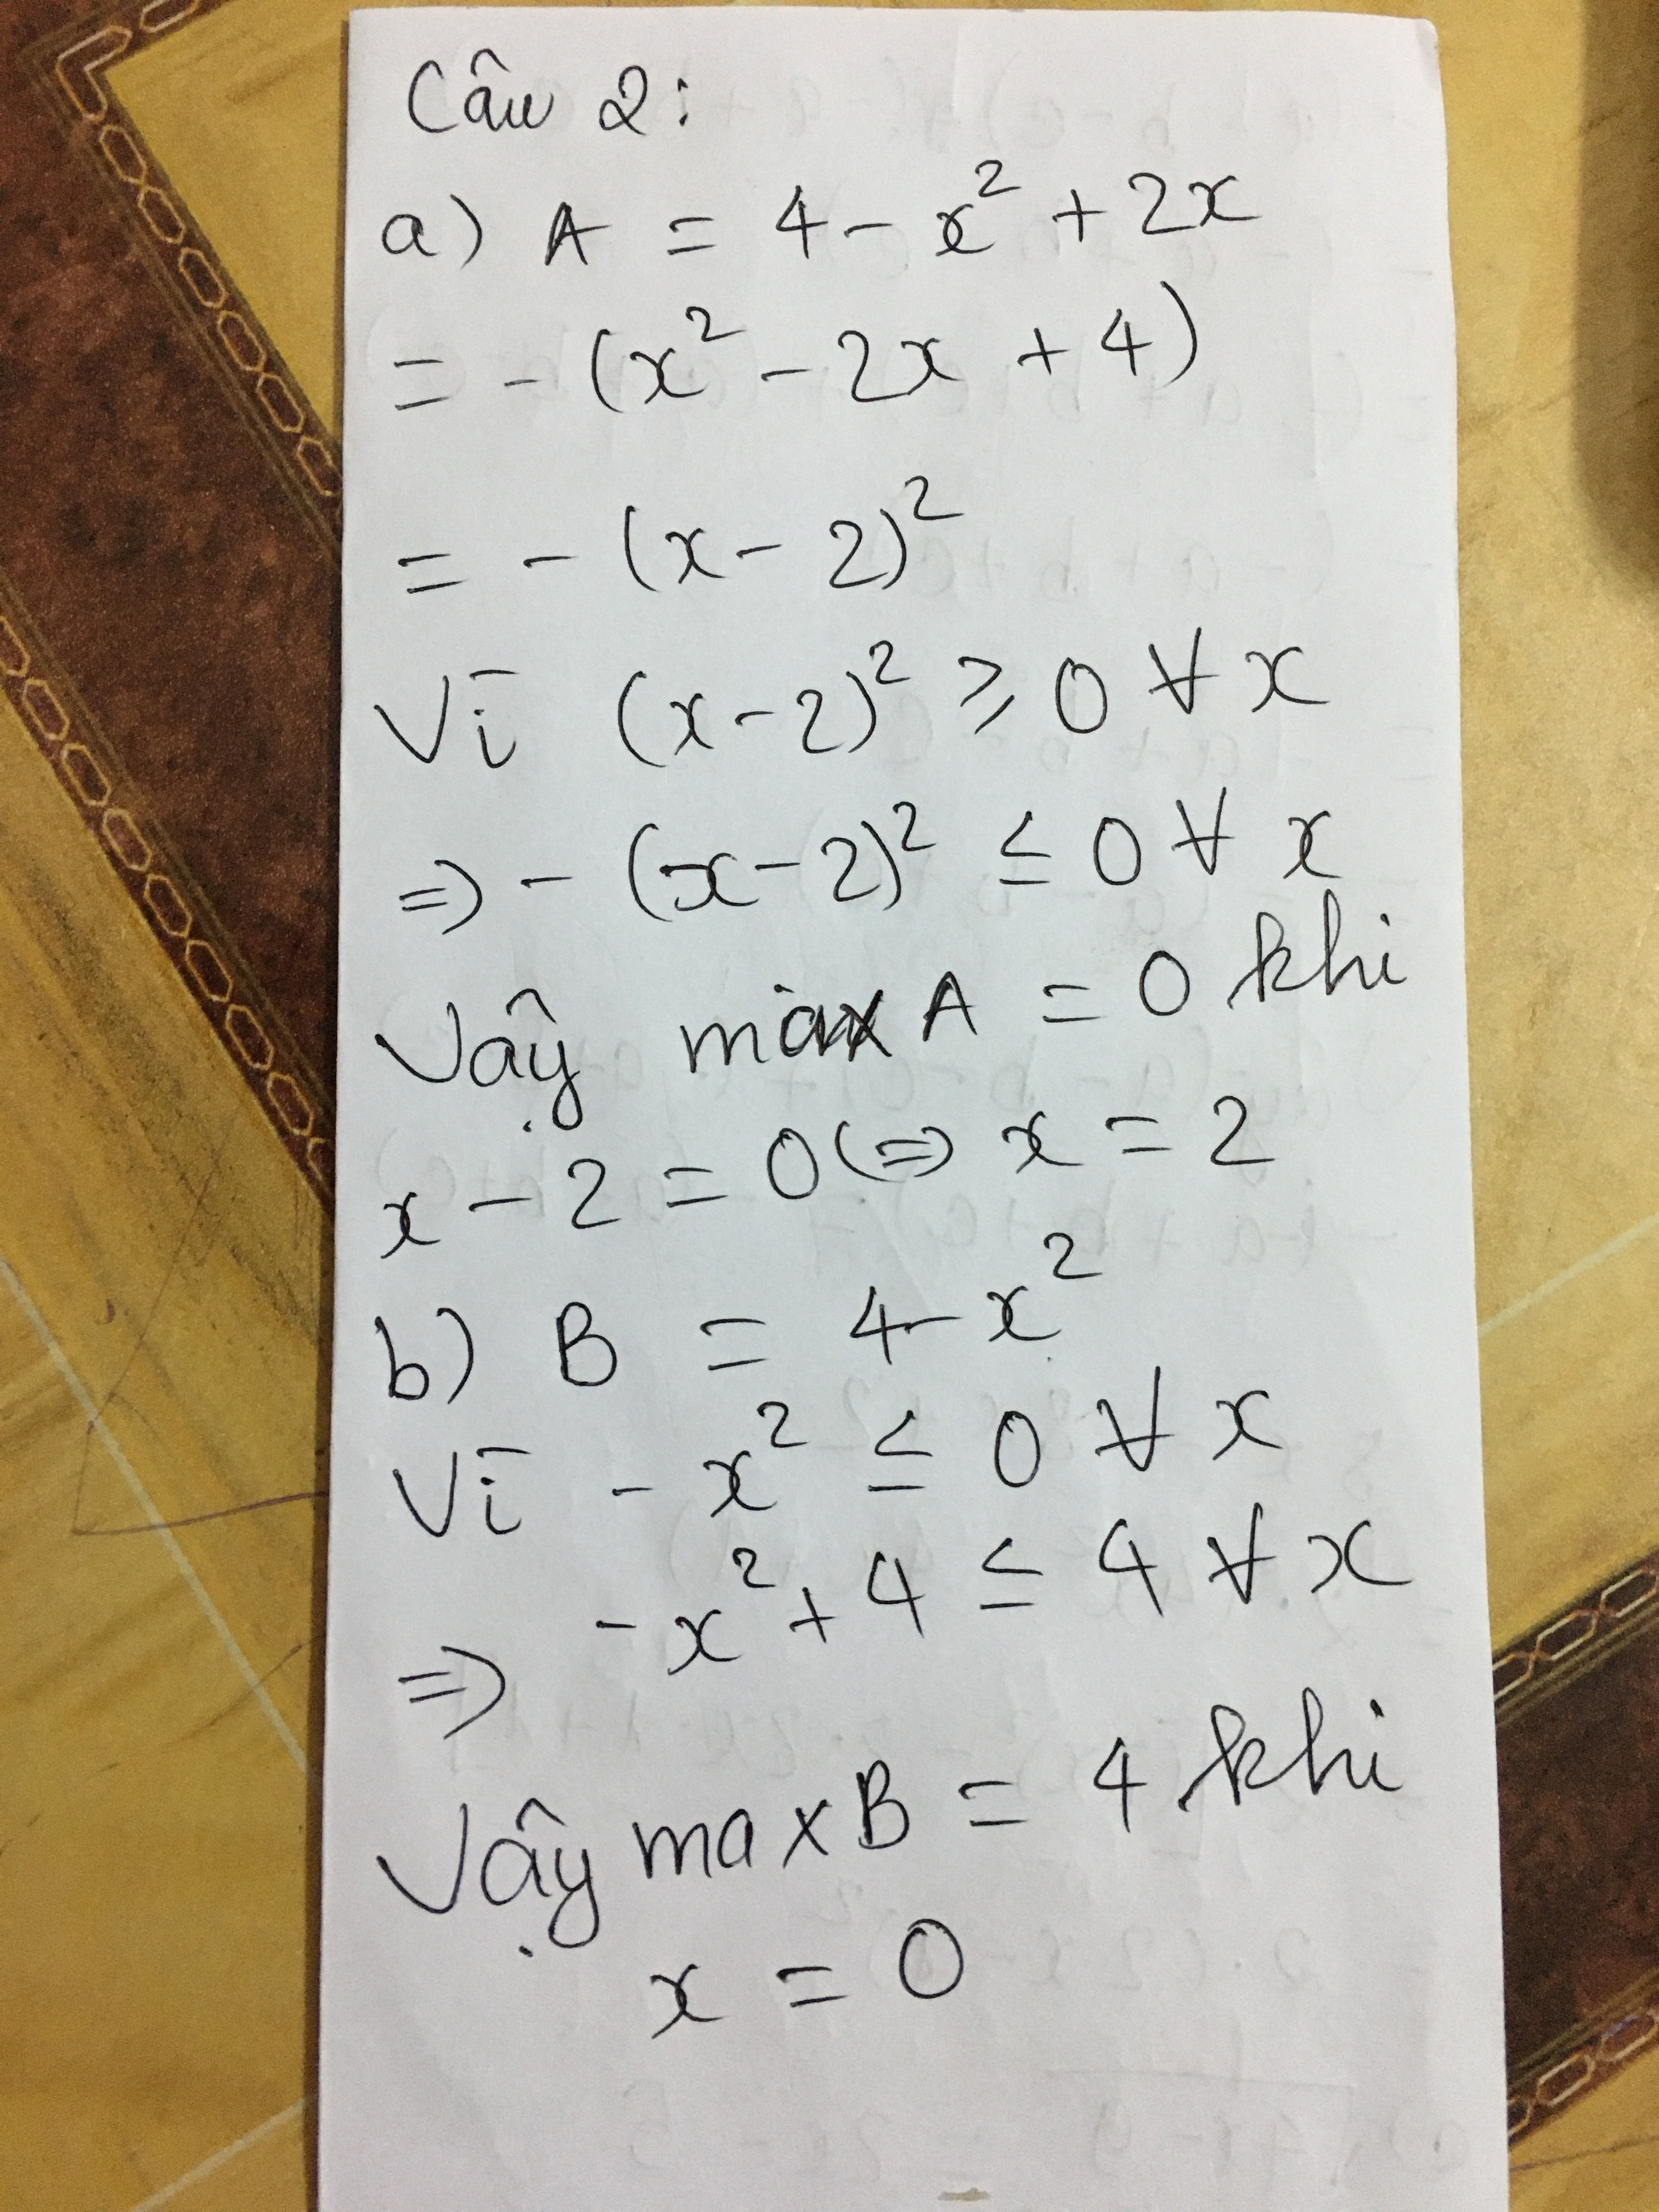 Câu 2:
a) A = 4 - x² + 2x
= - (x² - 2x + 4)
= - (x - 2)²
Vì (x - 2)² ≥ 0 ∀ x
=> - (x - 2)² ≤ 0 ∀ x
Vậy max A = 0 khi
x - 2 = 0 <=> x = 2
b) B = 4 - x²
Vì - x² ≤ 0 ∀ x
=> - x² + 4 ≤ 4 ∀ x
Vậy max B = 4 khi
x = 0